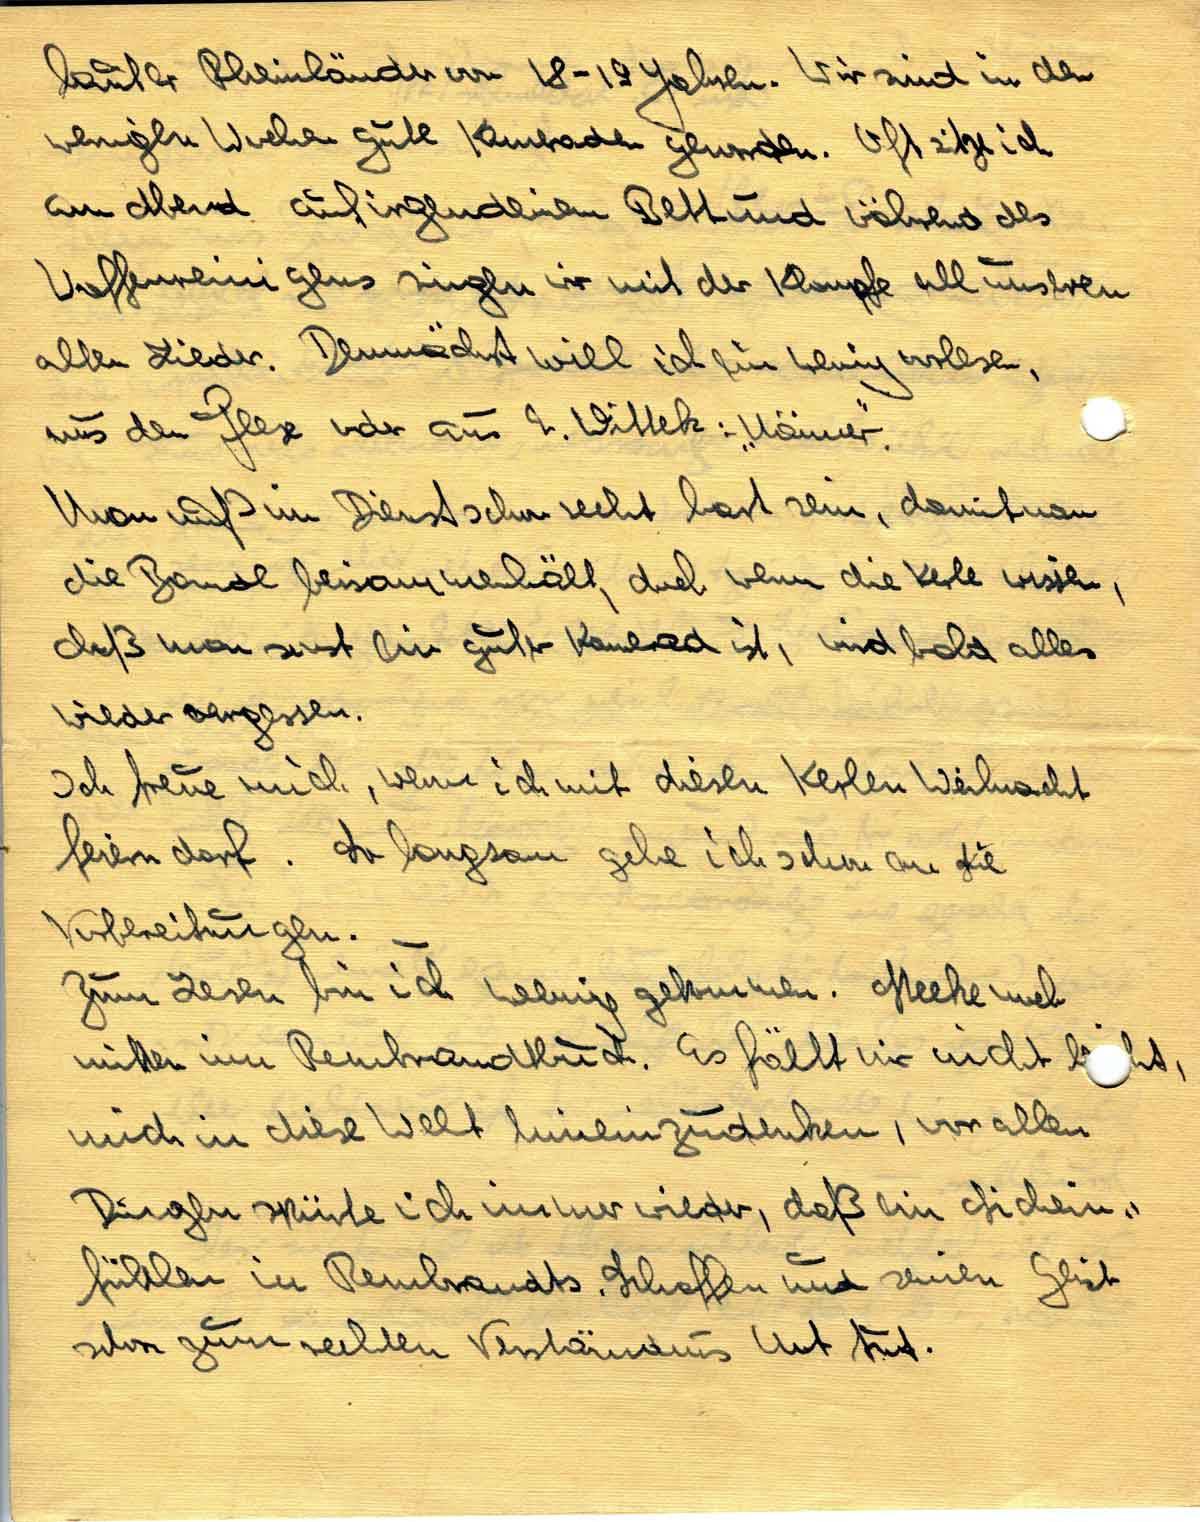 lauter Rheinländer von 18-19 Jahren. Wir sind in den
wenigen Wochen gute Kameraden geworden. Oft sitze ich
am Abend auf irgendeinem Bett und während des
Waffenreinigens singen wir mit der Klampfe all unsren
alten Lieder. Demnächst will ich ein wenig vorlesen,
aus dem Flex oder aus E. Wittek: „Männer".
Man muß im Dienst schon recht hart sein, damit man
die Bande beisammenhält, doch wenn die Kerle wissen,
daß man sonst ein guter Kamerad ist, wird bald alles
wieder vergessen.
Ich freue mich, wenn ich mit diesen Kerlen Weihnacht
feiern darf. So langsam gehe ich schon an die
Vorbereitungen.
Zum Lesen bin ich wenig gekommen. Stecke noch
mitten im Rembrandtbuch. Es fällt mir nicht leicht,
mich in diese Welt hineinzudenken, vor allen
Dingen spürte ich immer wieder, daß ein Sichein-
fühlen in Rembrandts Schaffen und seinen Geist
schon zum rechten Verständnis Not tut.